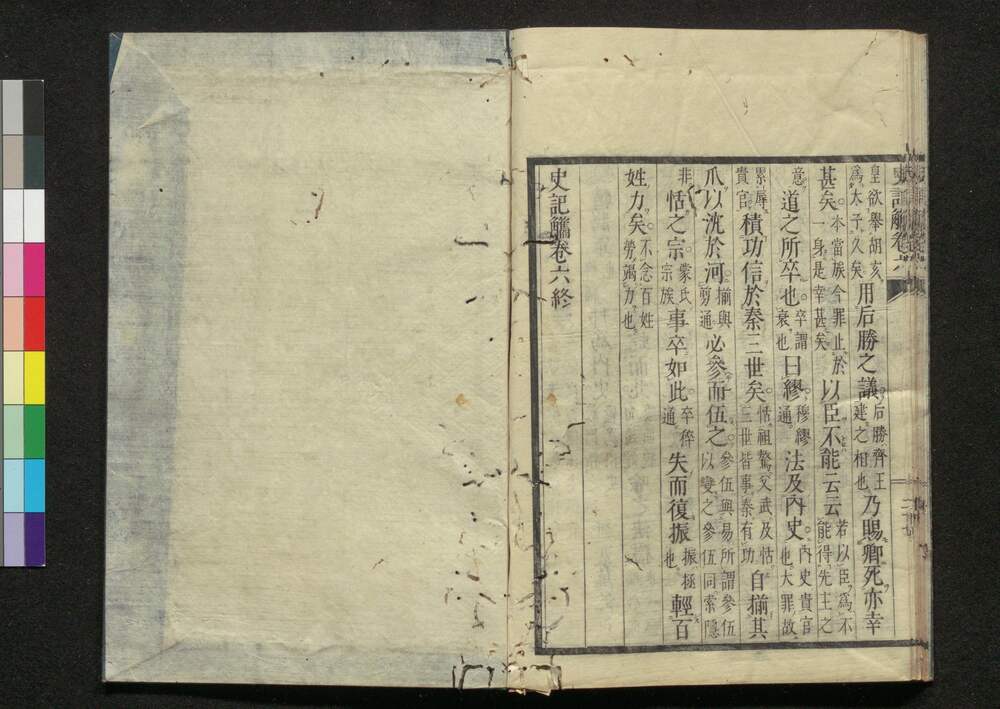 史記觿卷六
皇欲擧胡亥爲太子久矣用后勝之議后勝齊王建之相也乃賜卿死亦幸
甚矣本當族今罪止於一身是幸甚矣以臣不能云云若以臣爲不能得先主之
意道之所卒也卒謂衰也曰繆穆繆通法及內史內史貴官也大罪故
累辱貴官積功信於秦三世矣恬祖驁父武及恬三世皆事秦有功自揃其
爪以沈於河揃與剪通必參而伍之參伍與易所謂參伍以變之參伍同索隱
非恬之宗蒙氏宗族事卒如此卒猝通失而復振振拯也輕百
姓力矣不念百姓勞竭力也
史記觿卷六終